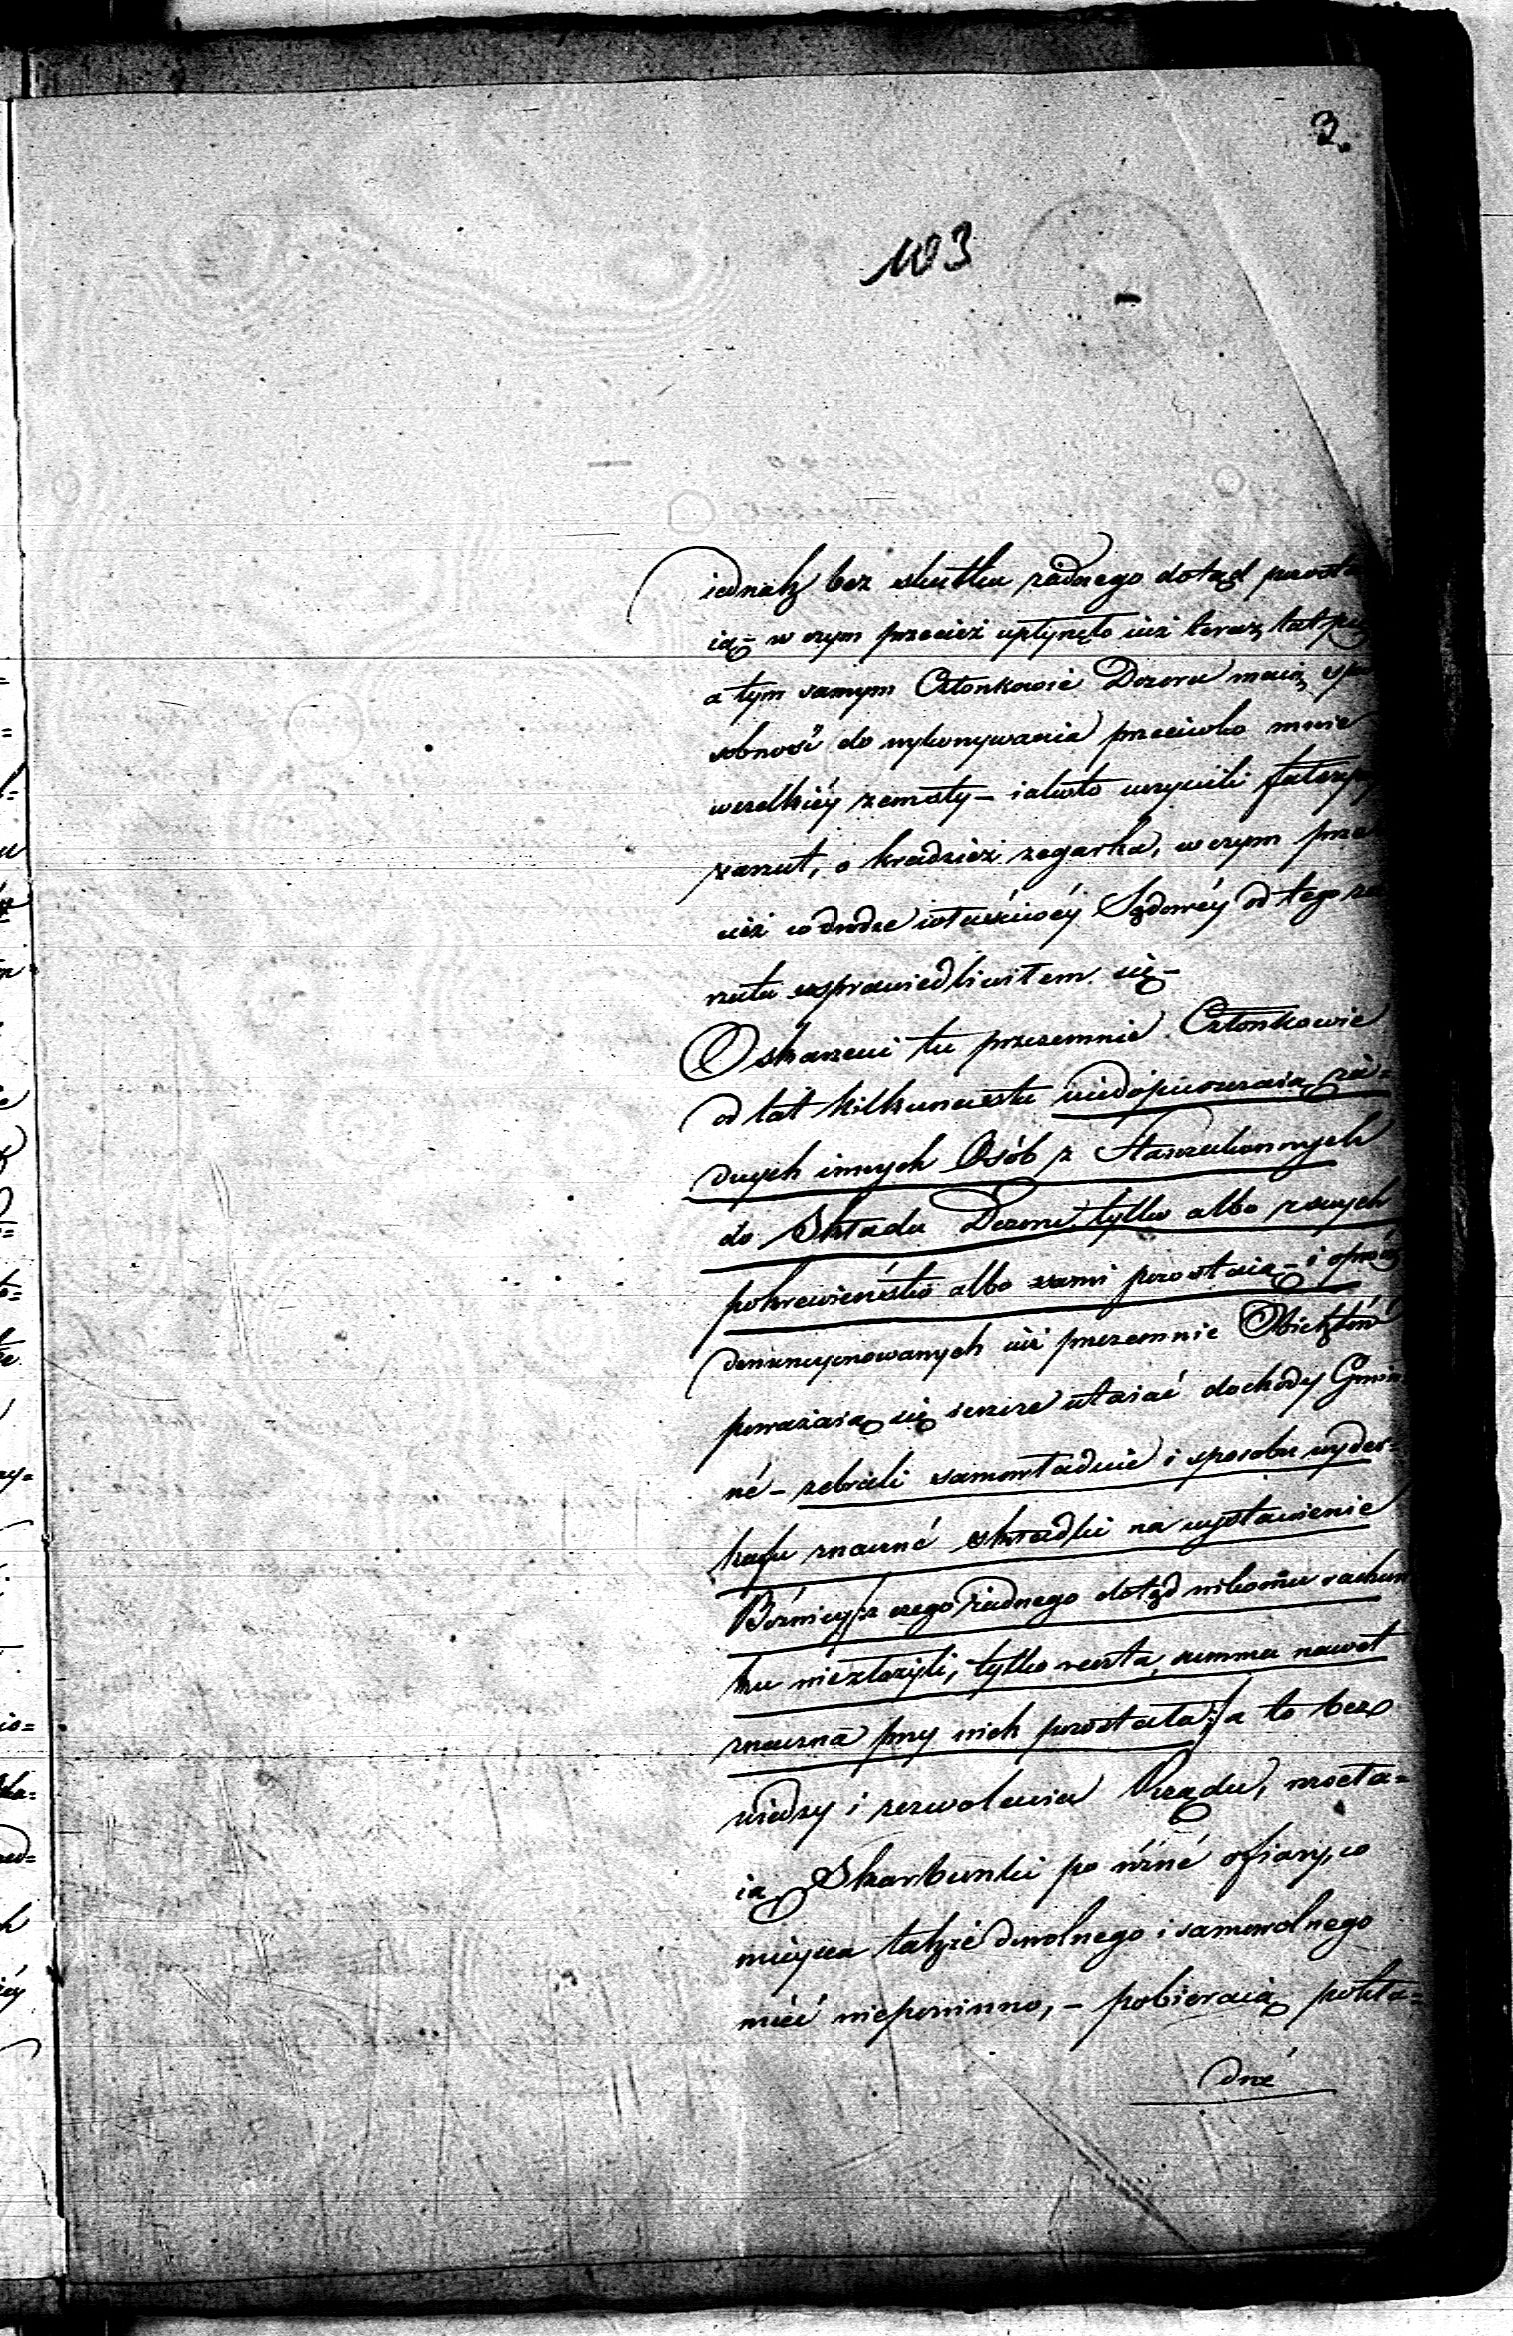 3.
103
iednak bez skutku żadnego dotąd pozosta
ią – w czym przecież upłynęło iuż teraz lat
a tym samym Członkowie Dozoru maią spo
sobność do wykonywania przeciwko mnie
wszelkiéy zemsty – iakoto uczynili fałszywy
zarzut, o kradzież zegarka, w czym prze
cież w drodze właściwéy Sądowéy od tego za
rzutu usprawiedliwiłem się –
Oskarzeni tu przezemnie Członkowie
od lat kilkunastu niedopuszczaią ża=
dnych innych Osób z Starozakonnych
do Składu Dozoru, tylko albo swych
pokrewieństw albo sami pozostaią – i oprócz
denuncyonowanych iuż przezemnie Obiektów
poważaią się ieszcze utaiać dochody Gmin
né – zebrali samowładnie i sposobem wyder=
kafu znaczné składki na wystawienie
Bóżnicy /: z czego żadnego dotąd nikomu rachun
ku niezłożyli, tylko reszta, summa nawet
znaczna przy nich pozostała :/ a to bez
wiedzy i zezwolenia Rządu, rozseła=
ią Skarbonki po różné ofiary, co
mieysca także dowolnego i samowolnego
mieć niepowinno, – pobieraią pokła=
dné